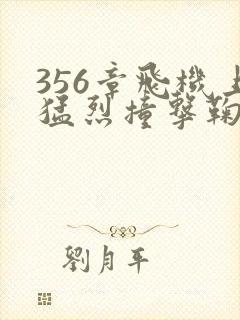 356章飛機上
猛烈撞擊鞠
劉月平